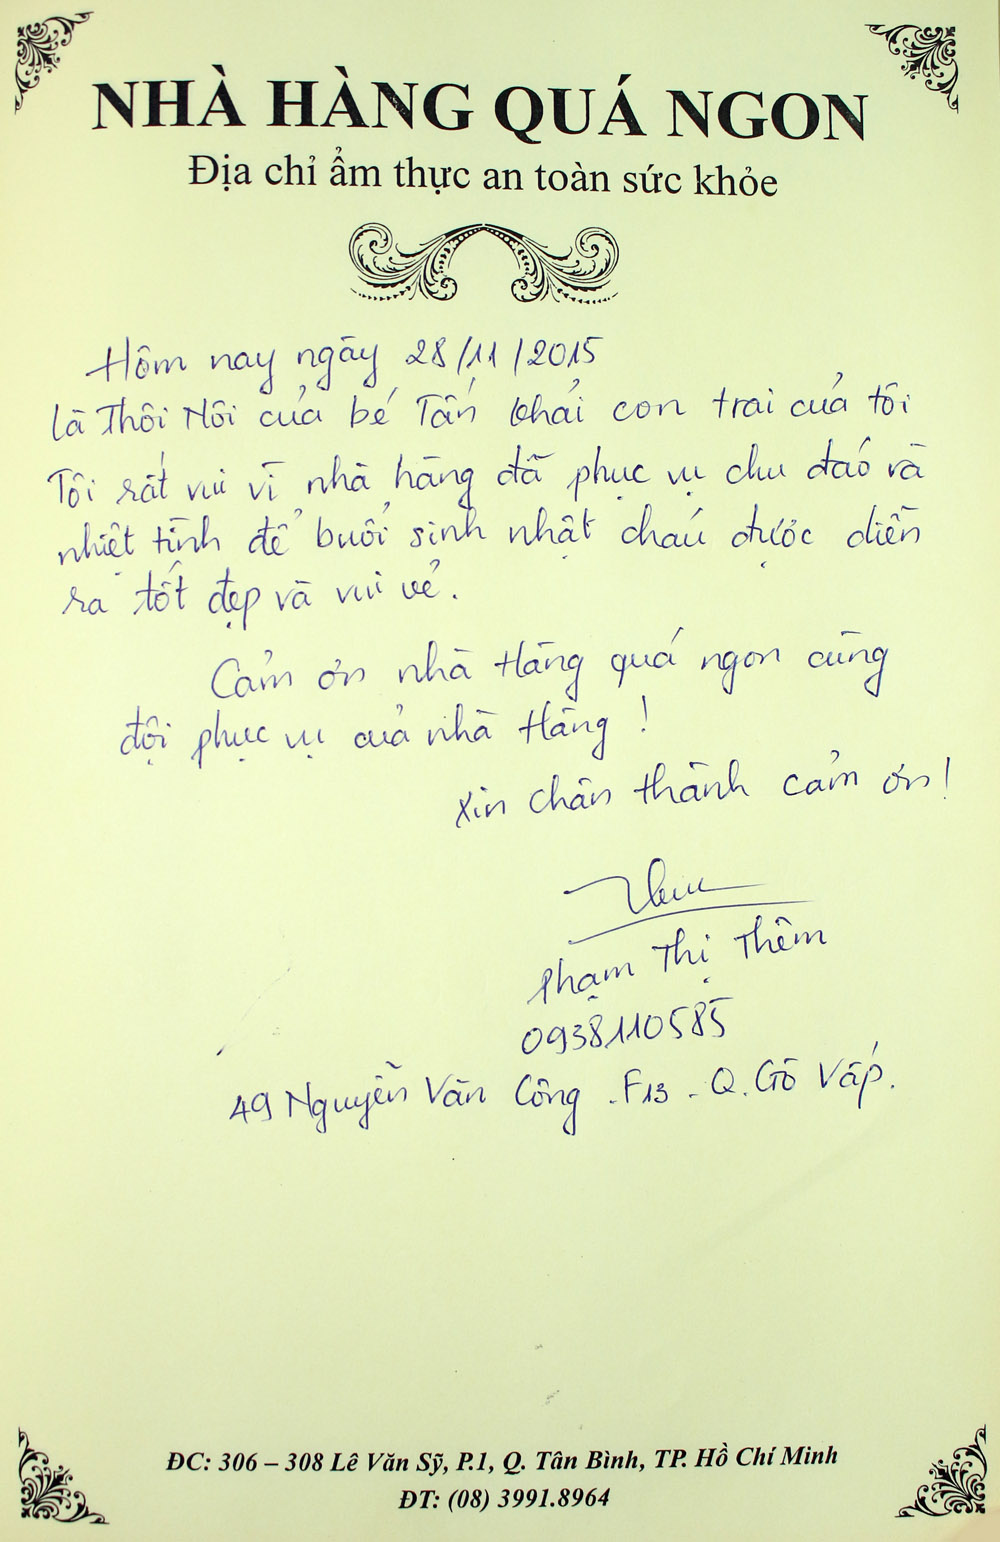 NHÀ HÀNG QUÁ NGON
Địa chỉ ẩm thực an toàn sức khỏe
Hôm nay ngày 28/11/2015
là Thôi Nôi của bé Tấn Khải con trai của tôi
Tôi rất vui vì nhà hàng đã phục vụ chu đáo và
nhiệt tình để buổi sinh nhật cháu được diễn
ra tốt đẹp và vui vẻ.
Cảm ơn nhà Hàng quá ngon cùng
đội phục vụ của nhà Hàng !
Xin chân thành cảm ơn!
Phạm Thị Thêm
0938110585
49 Nguyễn Văn Công - F13 - Q. Gò Vấp.
ĐC: 306 – 308 Lê Văn Sỹ, P.1, Q. Tân Bình, TP. Hồ Chí Minh
ĐT: (08) 3991.8964